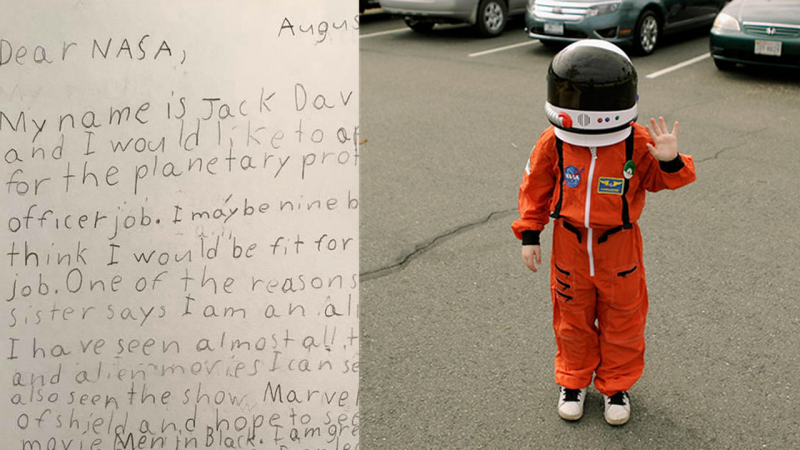 Augus
Dear NASA,
My name is Jack Dav
and I would like to ap
for the planetary prot
officer job. I may be nine b
think I would be fit for
job. One of the reasons
sister says I am an ali
I have seen almost all t
and alien movies I can se
also seen the show Marvel
Of shield and hope to see
movie Men in Black. I am gre
NASA